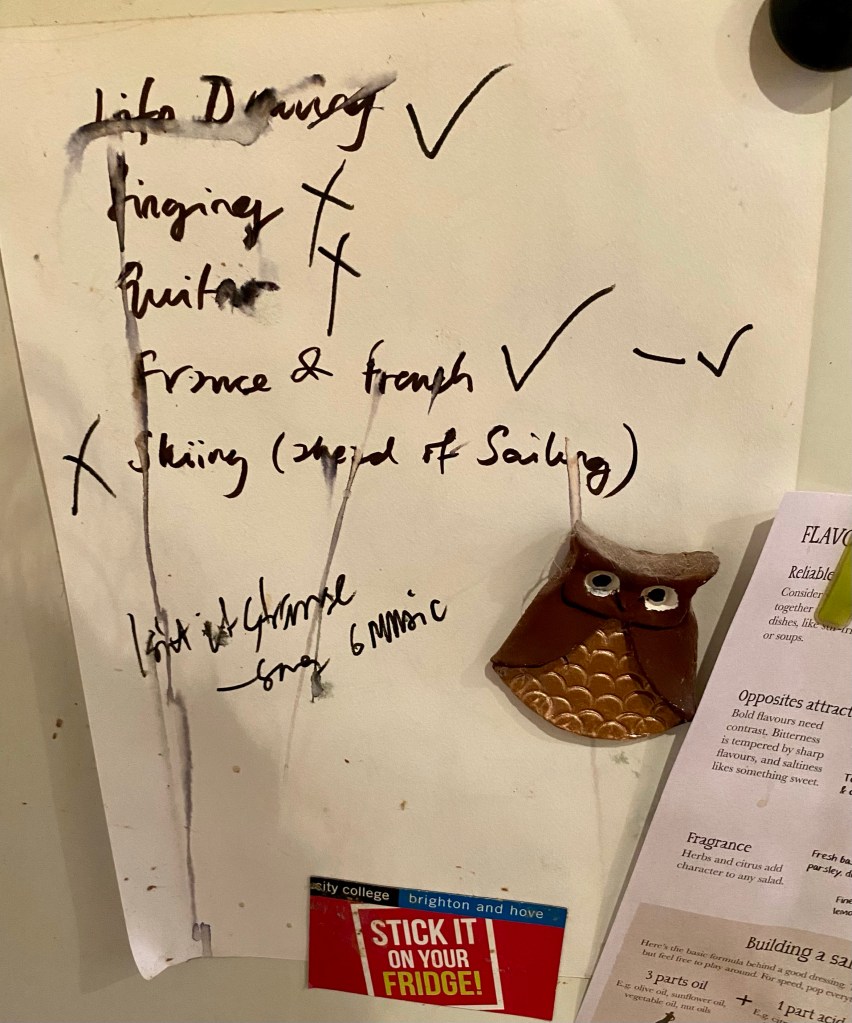 Life Drawing ✓
Singing X
Guitar X
France & French ✓ – ✓
X Skiing (ahead of Sailing)
6 Music
city college brighton and hove
STICK IT
ON YOUR
FRIDGE!
FLAVO
Reliable
Consider
together
dishes, like stir-fri
or soups.
Opposites attract
Bold flavours need
contrast. Bitterness
is tempered by sharp
flavours, and saltiness
likes something sweet.
Fragrance
Herbs and citrus add
character to any salad.
Fresh ba
parsley, di
Fine
lemo
Building a sal
Here's the basic formula behind a good dressing.
but feel free to play around. For speed, pop everyt
3 parts oil
E.g. olive oil, sunflower oil,
vegetable oil, nut oils
+
1 part acid
E.g. ci